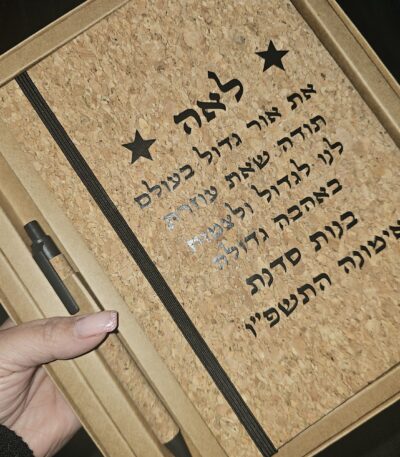 לאה
את אור גדול בעולם
תודה שאת עוזרת
לנו לגדול ולצמוח
באהבה גדולה
בנות סדנת
אימונה התשפ"ו